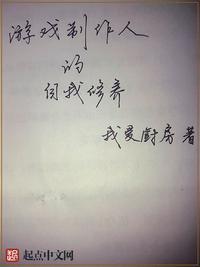 游戏制作人
的
自我修养
我爱廚房 著
起点中文网